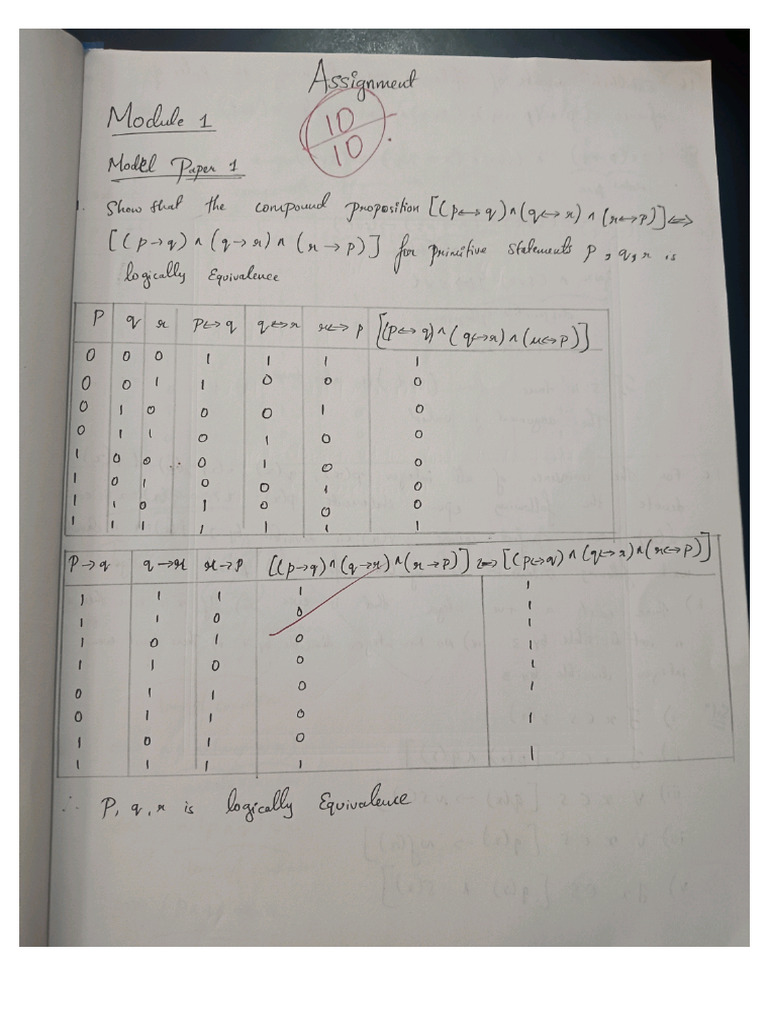 Assignment
10
10
Module 1
Model Paper 1
1. Show that the compound proposition [(p↔q)∧(q↔r)∧(r↔p)]⇔
[(p→q)∧(q→r)∧(r→p)] for primitive statements p, q, r is
logically Equivalence
P q r P↔q q↔r r↔p [(p↔q)∧(q↔r)∧(r↔p)]
0 0 0 1 1 1 1
0 0 1 1 0 0 0
0 1 0 0 0 1 0
0 1 1 0 1 0 0
1 0 0 0 1 0 0
1 0 1 0 0 1 0
1 1 0 1 0 0 0
1 1 1 1 1 1 1
P→q q→r r→p [(p→q)∧(q→r)∧(r→p)] ⇔ [(p↔q)∧(q↔r)∧(r↔p)]
1 1 1 1 1
1 1 0 0 1
1 0 1 0 1
1 1 0 0 1
0 1 1 0 1
0 1 1 0 1
1 0 1 0
1 1 1 1 1
∴ P, q, r is logically Equivalence